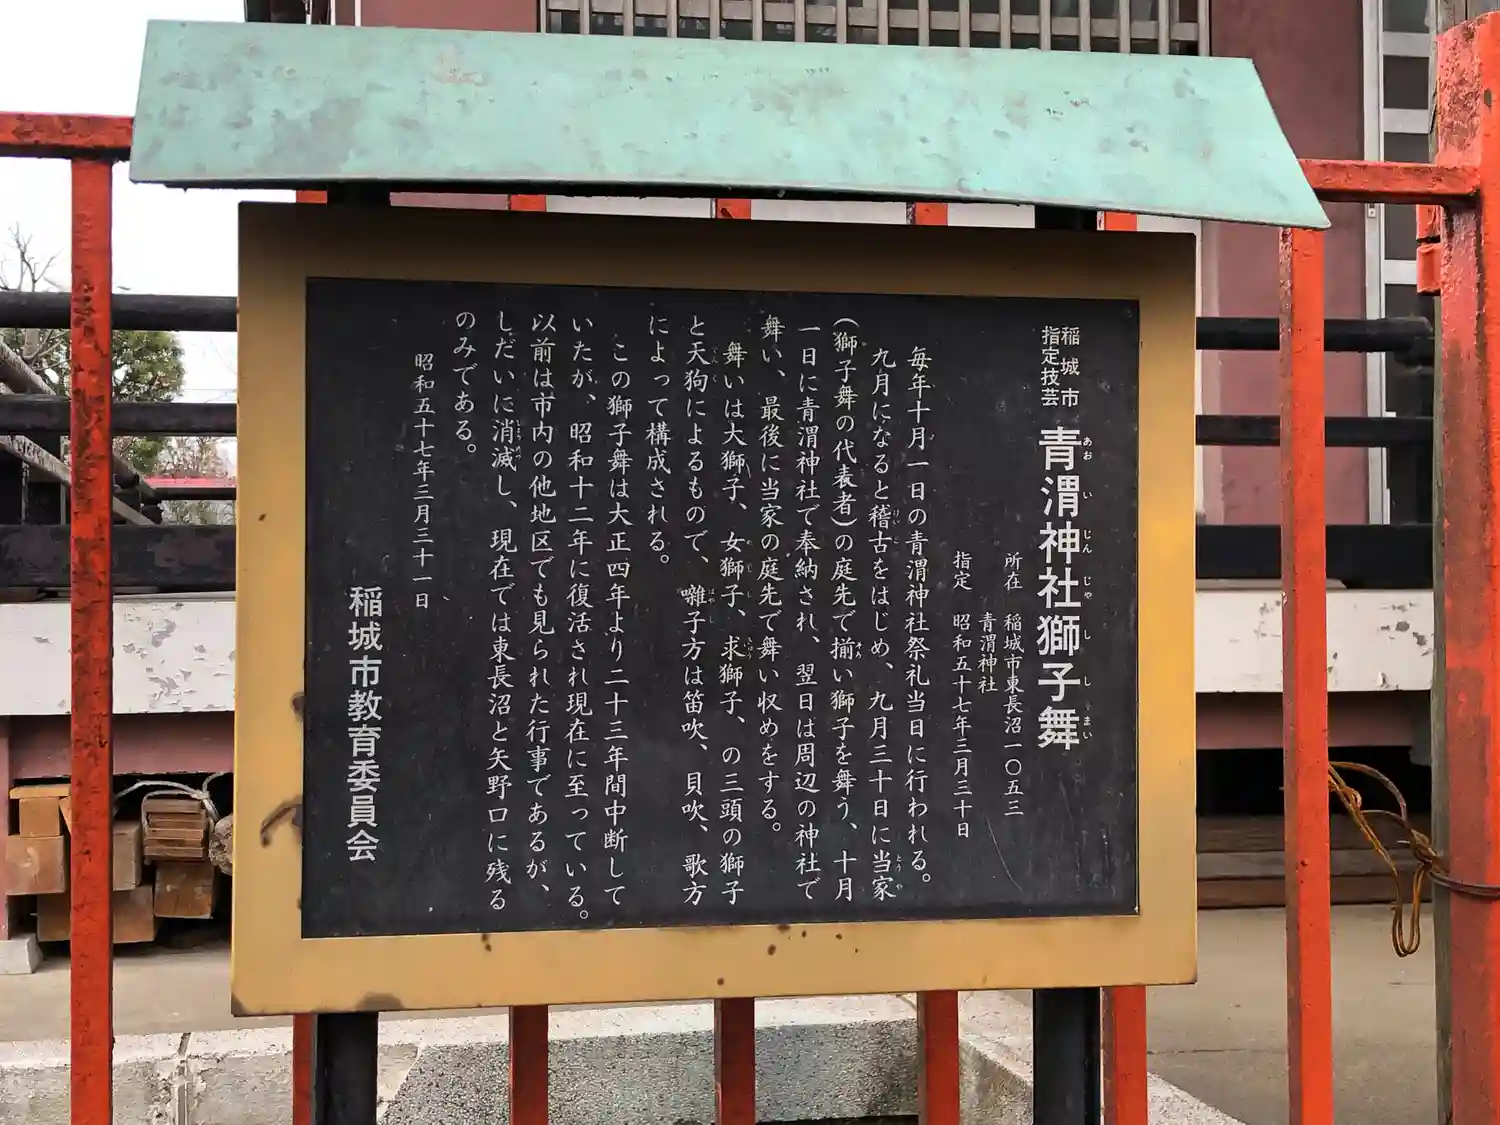 稲城市
指定技芸
青渭神社獅子舞
あおいじんじやししまい
所在 稲城市東長沼一〇五三
青渭神社
指定 昭和五十七年三月三十日
毎年十月一日の青渭神社祭礼当日に行われる。
九月になると稽古をはじめ、九月三十日に当家
(獅子舞の代表者)の庭先で揃い獅子を舞う、十月
一日に青渭神社で奉納され、翌日は周辺の神社で
舞い、最後に当家の庭先で舞い収めをする。
舞いは大獅子、女獅子、求獅子、の三頭の獅子
と天狗によるもので、囃子方は笛吹、貝吹、歌方
によって構成される。
この獅子舞は大正四年より二十三年間中断して
いたが、昭和十二年に復活され現在に至っている。
以前は市内の他地区でも見られた行事であるが、
しだいに消滅し、現在では東長沼と矢野口に残る
のみである。
昭和五十七年三月三十一日
稲城市教育委員会